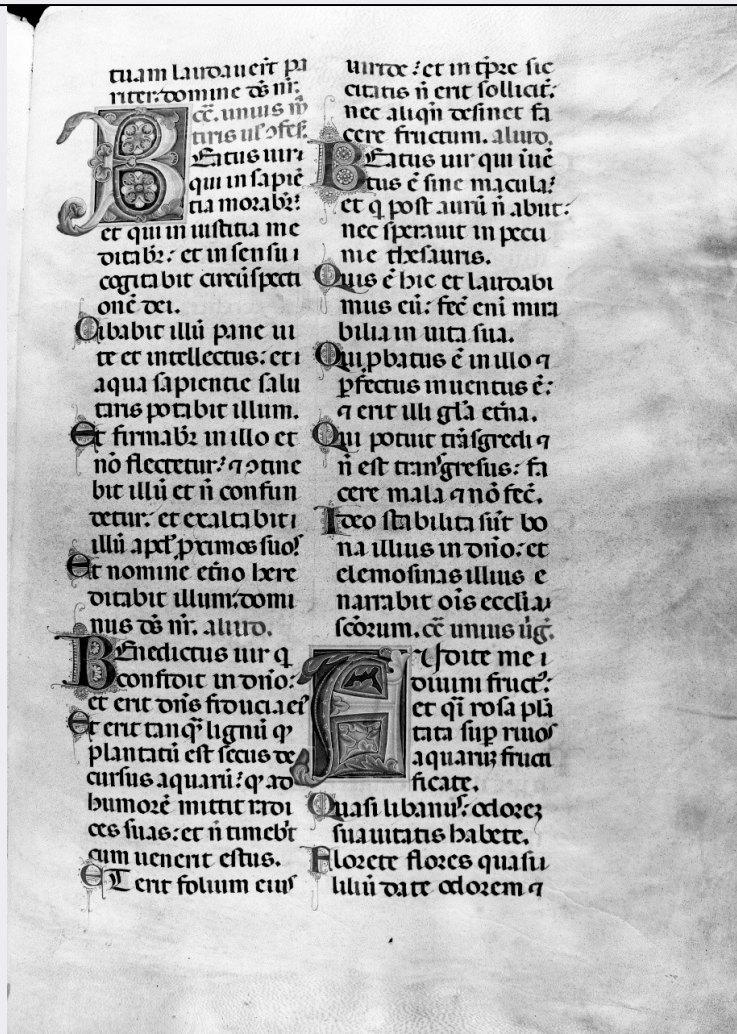 tuam laudauerīt pa
riter. domine ds̄ nr̄.
cc̄. unius m̄
tiris ul' ꝯfes.
Beatus uir
qui in sapiē
tia morabr̄:
et qui in iusticia me
ditabr̄: et in sensu i
cogitabit circūspecti
onē dei.
Cibabit illū pane ui
te et intellectus: et i
aqua sapientie salu
taris potabit illum.
Et firmabr̄ in illo et
nō flectetur: ⁊ ꝯtine
bit illū et n̄ confun
detur: et exaltabit i
illū apd' ꝓximos suos
Et nomine etn̄o here
ditabit illum: domi
nus ds̄ nr̄. aliud.
Benedictus uir q
confidit in dn̄o:
et erit dn̄s fiducia ei'
Et erit tanq̄ lignū qđ
plantatū est secus de
cursus aquarū: qđ ad
humorē mittit radi
ces suas: et n̄ timeb't
cum uenerit estus.
ET erit folium eius
uiride: et in tp̄re sic
citatis n̄ erit sollicit':
nec aliqn̄ desinet fa
cere fructum. aliud.
Beatus uir qui īuē
tus ē sine macula:
et q post aurū n̄ abiit:
nec sperauit in pecu
nie thesauris.
Quis ē hic et laudabi
mus eū: fec̄ eni mira
bilia in uita sua.
Qui ꝓbatus ē in illo ⁊
ꝑfectus inuentus ē:
⁊ erit illi gl̄a etn̄a.
Qui potuit trāsgredi ⁊
n̄ est trans'gresus: fa
cere mala ⁊ nō fec̄.
Ideo stabilita sūt bo
na illius in dn̄o: et
elemosinas illius e
narrabit ois̄ eccl̄ia
scōrum. cc̄ unius uīg̉.
Audite me i
diuini fruct':
et qī rosa plā
tata suꝑ riuos
aquaruꝫ fructi
ficate.
Quasi libanus: odoreꝫ
suauitatis habete.
Florete flores quasi
liliū date odorem ⁊